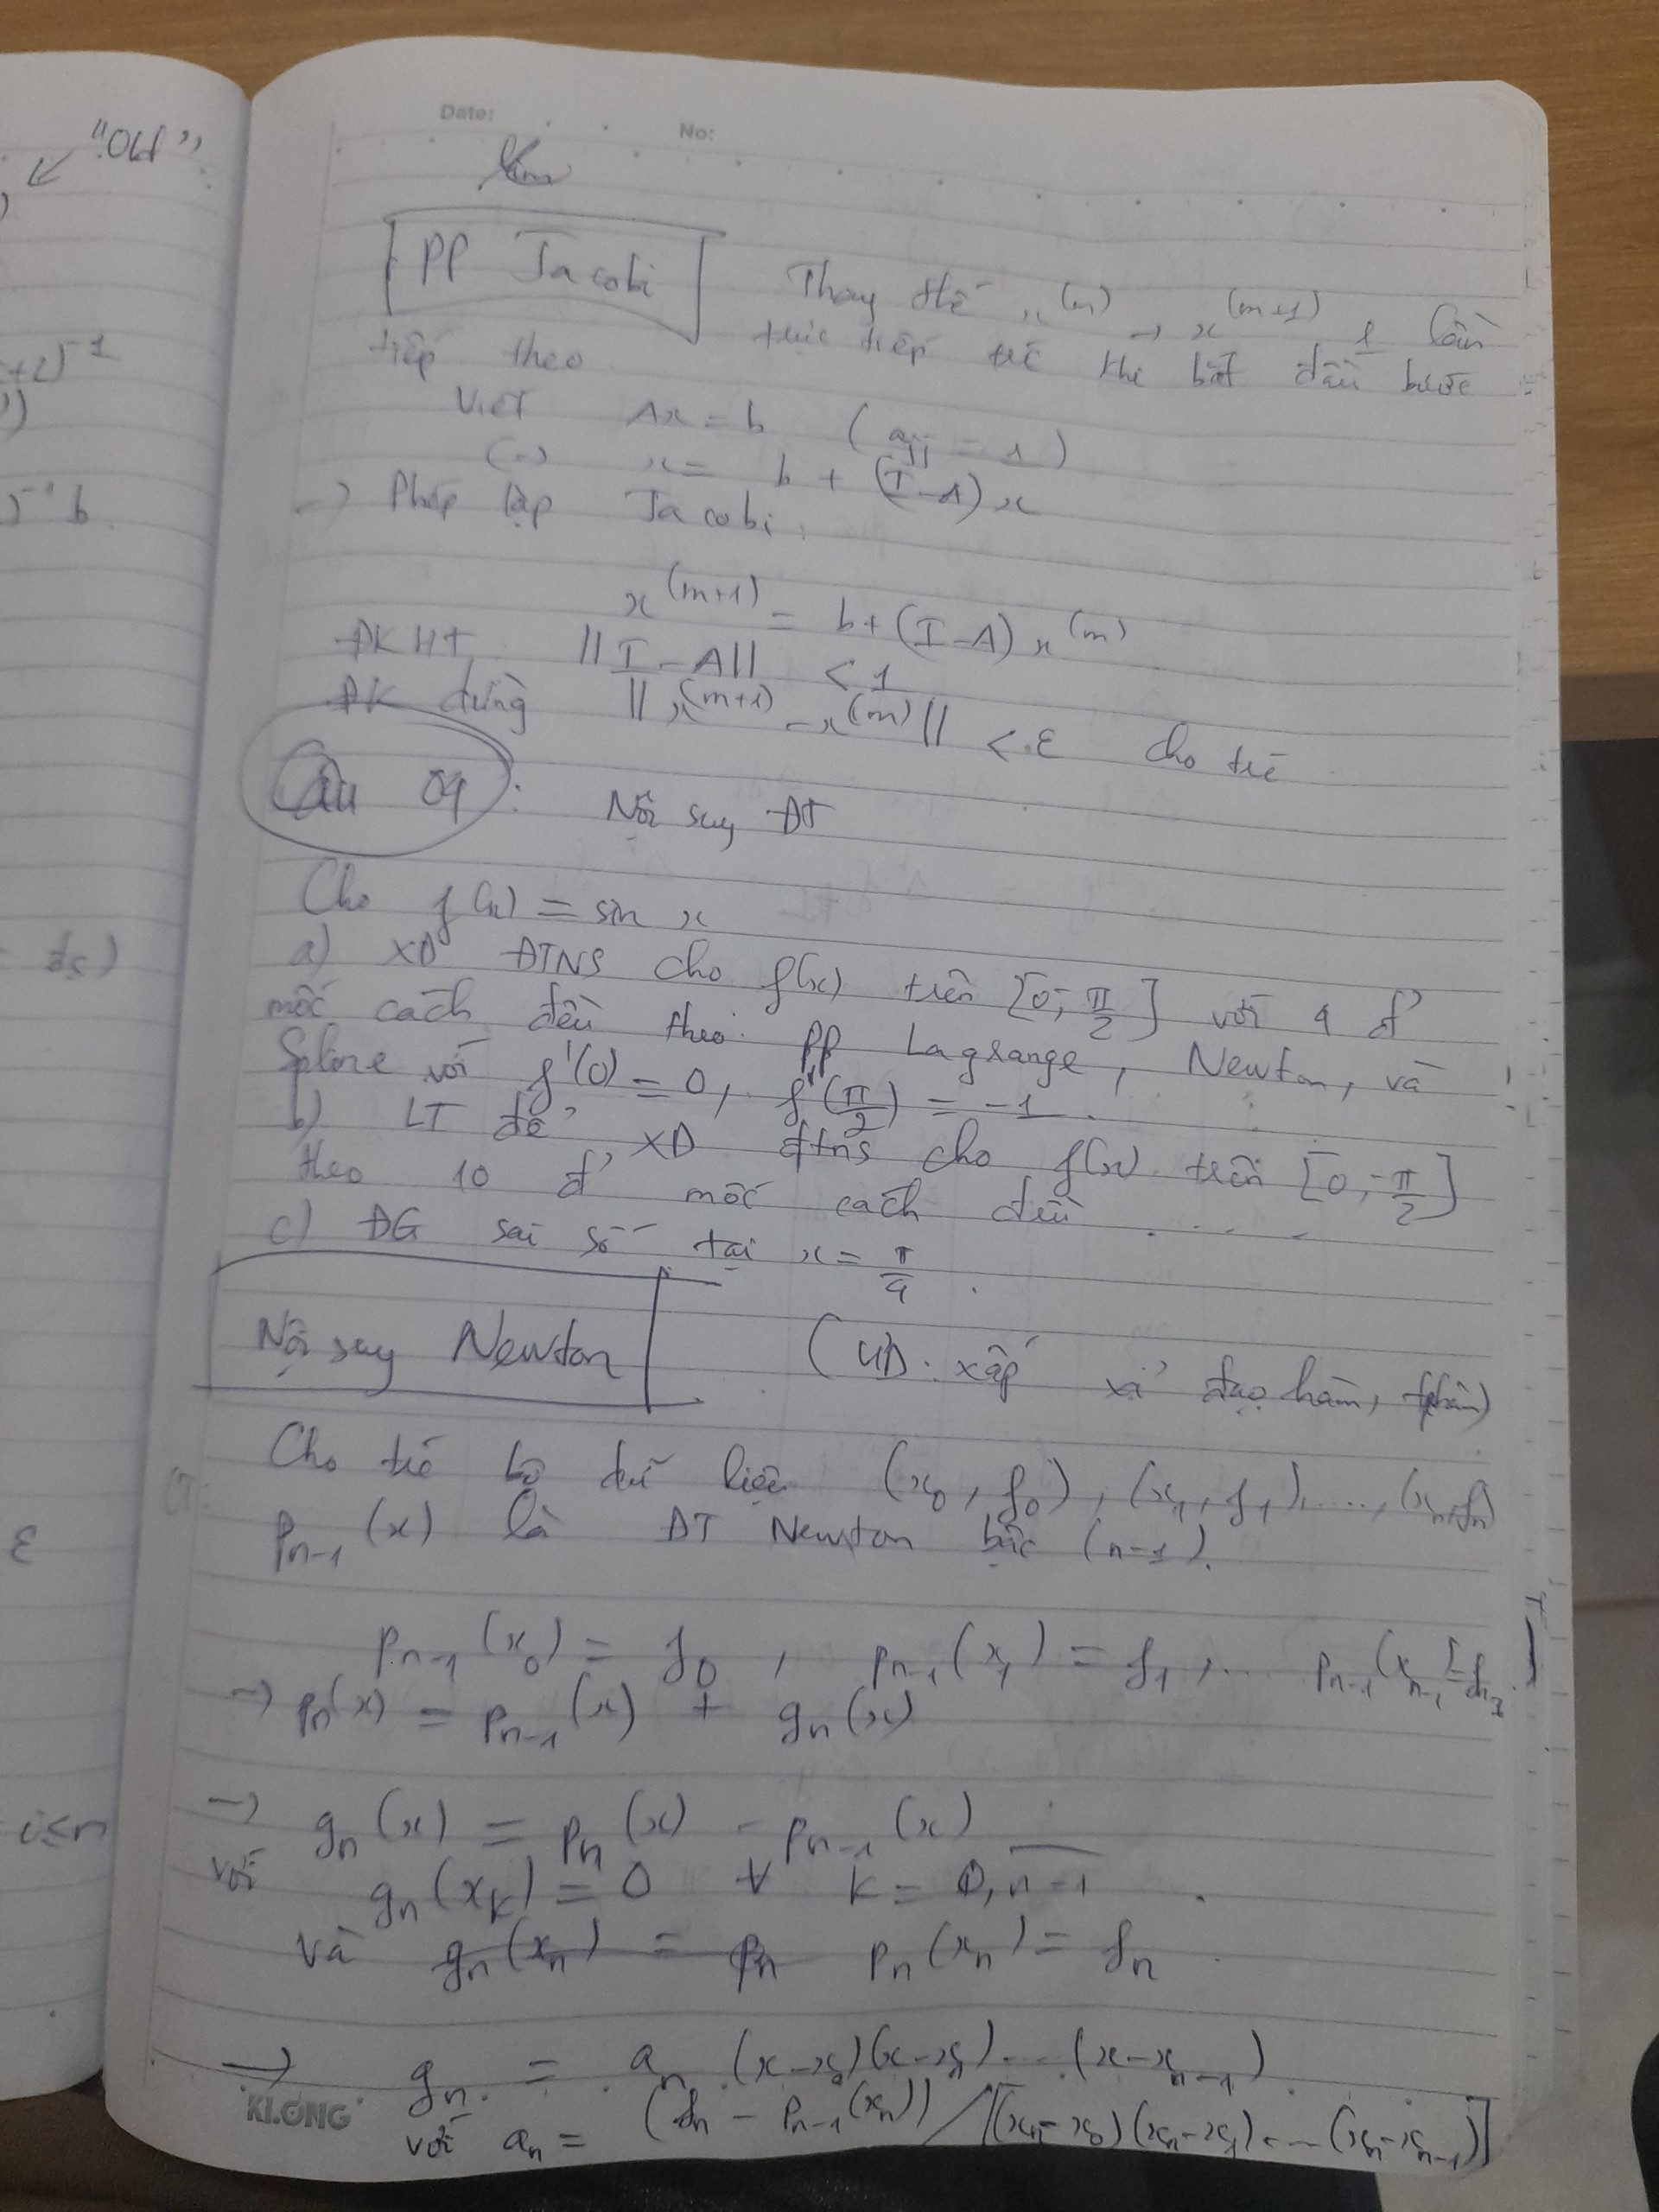 "Old"
+2)⁻¹
)⁻¹ b.
ε
i≤n
Date:
No:
PP Jacobi
Thay thế x^(m) → x^(m+1) 1 lần
trực tiếp tức thì bắt đầu bước
tiếp theo
Viết Ax = b (a_jj = 1)
(=) x = b + (I - A)x
→ Phép lặp Jacobi.
x^(m+1) = b + (I - A) x^(m)
ĐKHT ||I - A|| < 1
ĐK dừng ||x^(m+1) - x^(m)|| < ε cho trc
Câu 04: Nội suy ĐT
Cho f(x) = sin x
a) XD ĐTNS cho f(x) trên [0; π/2] với 4 đ'
mốc cách đều theo PP Lagrange, Newton, và
Spline với f'(0) = 0, f'(π/2) = -1.
b) LT để XD đtns cho f(x) trên [0; π/2]
theo 10 đ' mốc cách đều ....
c) ĐG sai số tại x = π/4.
Nội suy Newton (UD: xấp xỉ đạo hàm, tphân)
Cho trc bộ dữ liệu (x₀, f₀), (x₁, f₁), ..., (xₙ, fₙ)
pₙ₋₁(x) là ĐT Newton bậc (n-1).
pₙ₋₁(x₀) = f₀, pₙ₋₁(x₁) = f₁, ... pₙ₋₁(xₙ₋₁) = fₙ₋₁
→ pₙ(x) = pₙ₋₁(x) + gₙ(x)
→ gₙ(x) = pₙ(x) - pₙ₋₁(x)
với gₙ(x_k) = 0 ∀ k = 0, n-1.
và gₙ(xₙ) = pₙ pₙ(xₙ) = fₙ.
→ gₙ = aₙ (x-x₀)(x-x₁)...(x-xₙ₋₁)
với aₙ = (fₙ - pₙ₋₁(xₙ)) / [(xₙ-x₀)(xₙ-x₁)...(xₙ-xₙ₋₁)]
KLONG